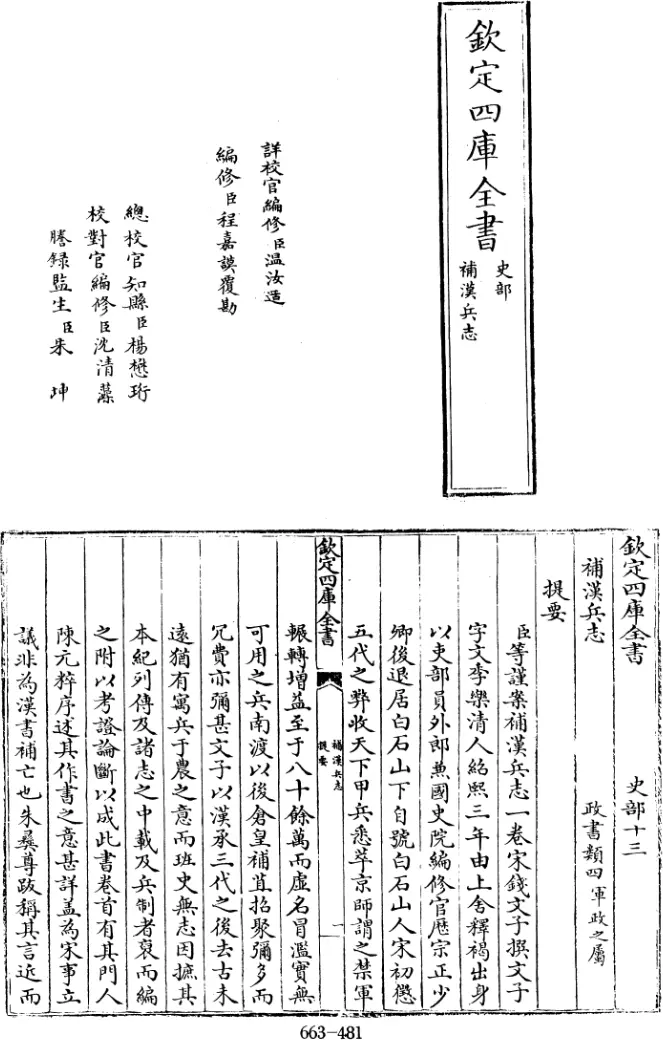 欽定四庫全書
史部
補漢兵志
詳校官編修臣温汝适
編修臣程嘉謨覆勘
總校官知縣臣楊懋珩
校對官編修臣沈清藻
謄録監生臣朱坤
欽定四庫全書 史部十三
補漢兵志 政書類四軍政之屬
提要
臣等謹案補漢兵志一卷宋錢文子撰文子
字文季樂清人紹熙三年由上舍釋褐出身
以吏部員外郎兼國史院編修官歴宗正少
卿後退居白石山下自號白石山人宋初懲
五代之弊收天下甲兵悉萃京師謂之禁軍
欽定四庫全書
補漢兵志
提要
一
輾轉增益至于八十餘萬而虚名冒濫實無
可用之兵南渡以後倉皇補苴招聚彌多而
冗費亦彌甚文子以漢承三代之後去古未
遠猶有寓兵于農之意而班史無志因摭其
本紀列傳及諸志之中載及兵制者裒而編
之附以考證論斷以成此書卷首有其門人
陳元粹序述其作書之意甚詳盖為宋事立
議非為漢書補亡也朱彛尊跋稱其言近而
663-481